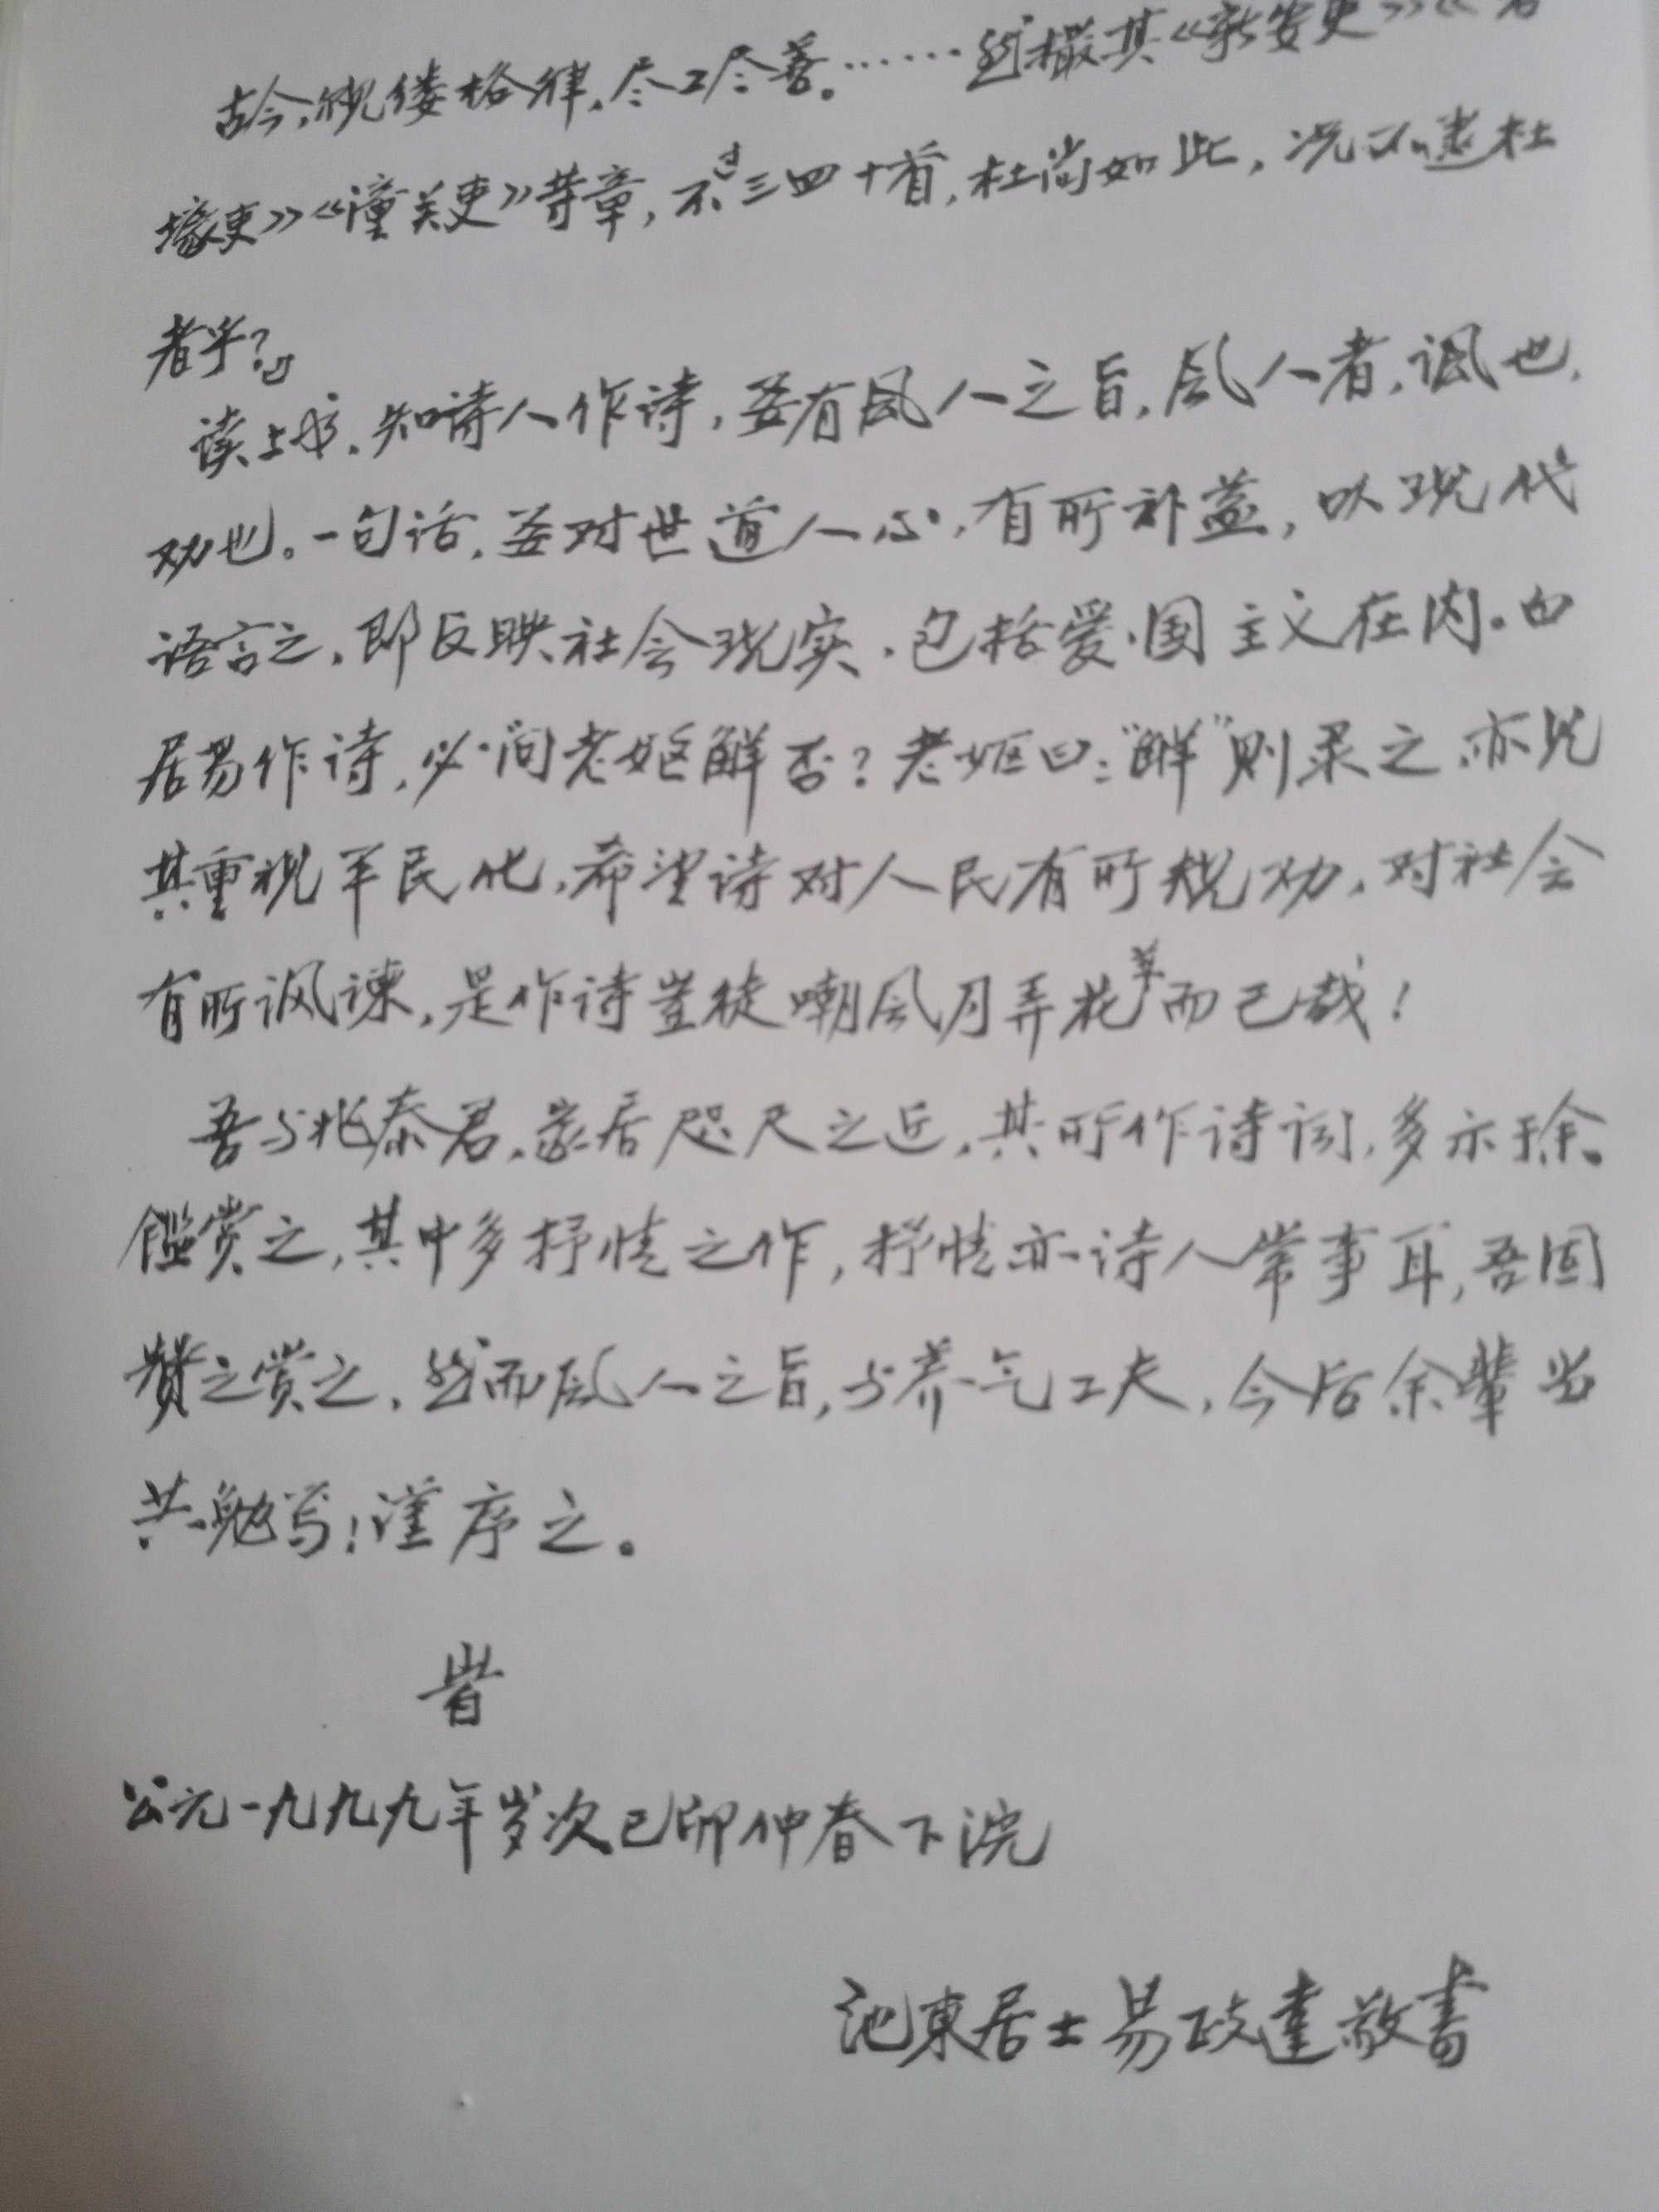 古今,覙缕格律,尽工尽善。……然撮其《新安吏》《石
壕吏》《潼关吏》等章,不过三四十首,杜尚如此,况不逮杜
者乎?”
读上书,知诗人作诗,要有风人之旨,风人者,讽也,
劝也。一句话,要对世道人心,有所补益,以现代
语言之,即反映社会现实,包括爱国主义在内。白
居易作诗,必问老妪解否?老妪曰:“解”则录之,亦见
其重视平民化,希望诗对人民有所规劝,对社会
有所讽谏,是作诗岂徒嘲风月弄花草而已哉!
吾与兆泰君,家居咫尺之近,其所作诗词,多示于余。
鉴赏之,其中多抒情之作,抒情亦诗人常事耳,吾固
赞之赏之,然而风人之旨,与养气工夫,今后余辈当
共勉焉!谨序之。
旹
公元一九九九年岁次己卯仲春下浣
池東居士易政達敬書